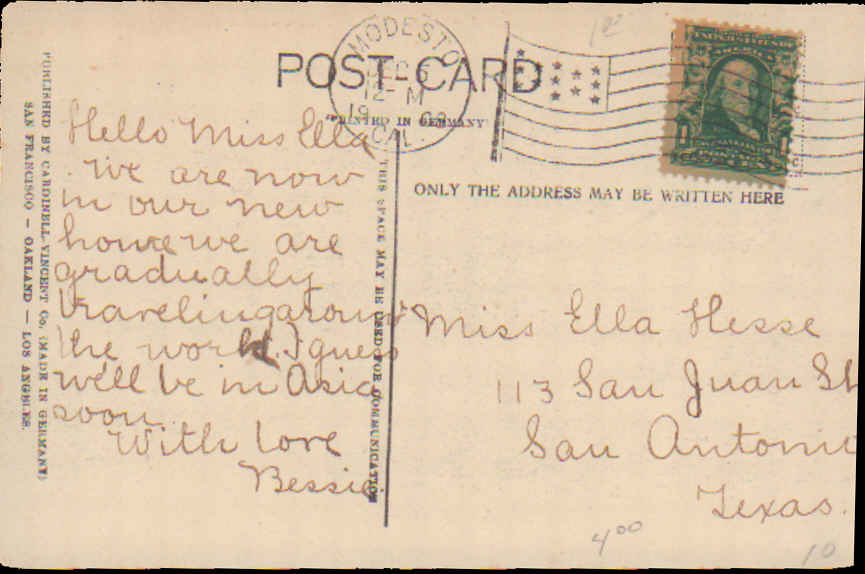 POST-CARD
"PRINTED IN GERMANY"
MODESTO
DEC
12-M
19
CAL.
1
ONLY THE ADDRESS MAY BE WRITTEN HERE
PUBLISHED BY CARDINELL-VINCENT CO. (MADE IN GERMANY)
SAN FRANCISCO — OAKLAND — LOS ANGELES.
THIS SPACE MAY BE USED FOR COMMUNICATION
Hello Miss Ella
We are now
in our new
home we are
gradually
traveling around
the world. I guess
we'll be in Asia
soon.
With love
Bessie.
Miss Ella Hesse
113 San Juan St
San Antonio
Texas.
4 00
10